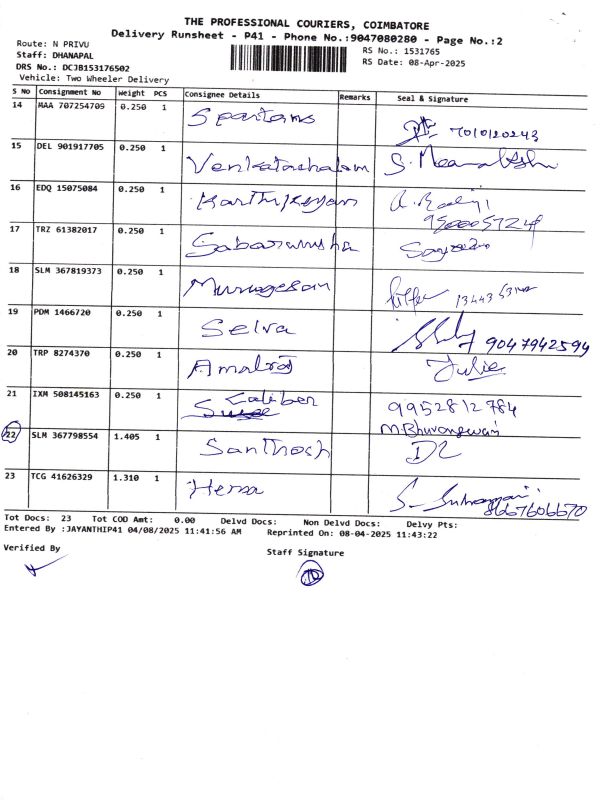 THE PROFESSIONAL COURIERS, COIMBATORE
Delivery Runsheet - P41 - Phone No.:9047080280 - Page No.:2
Route: N PRIVU
RS No.: 1531765
Staff: DHANAPAL
RS Date: 08-Apr-2025
DRS No.: DCJB153176502
Vehicle: Two Wheeler Delivery
S No Consignment No Weight PCS Consignee Details Remarks Seal & Signature
14 MAA 707254709 0.250 1 Spartans 7010120243
15 DEL 901917705 0.250 1 Venkatachalam S. Meenakshi
16 EDQ 15075084 0.250 1 Karthikeyan
17 TRZ 61382017 0.250 1 Sabareeusha
18 SLM 367819373 0.250 1 Murugesan
19 PDM 1466720 0.250 1 Selva 9047942594
20 TRP 8274370 0.250 1 Amalraj Julie
21 IXM 508145163 0.250 1 Caliber 9952812784
M.Bhuvaneswari
22 SLM 367798554 1.405 1 Santhosh
23 TCG 41626329 1.310 1 Hema 8667606670
Tot Docs: 23 Tot COD Amt: 0.00 Delvd Docs: Non Delvd Docs: Delvy Pts:
Entered By :JAYANTHIP41 04/08/2025 11:41:56 AM Reprinted On: 08-04-2025 11:43:22
Verified By
Staff Signature